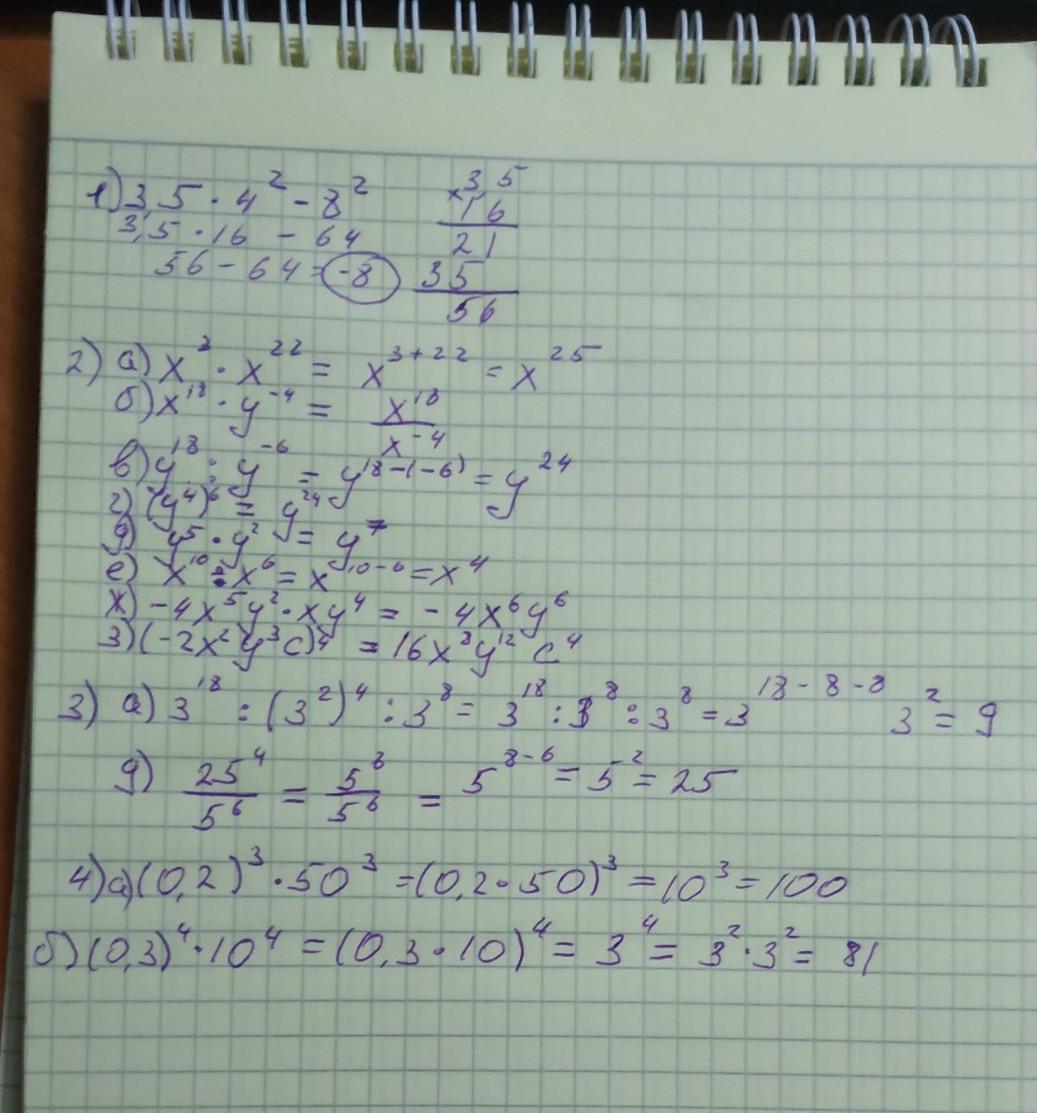 1) 3,5 · 4² - 8²
3,5 · 16 - 64
56 - 64 = -8
× 3,5
16
21
35
56
2) а) x³ · x²² = x³⁺²² = x²⁵
б) x¹⁸ · y⁻⁴ = x¹⁸/x⁻⁴
в) y¹⁸ : y⁻⁶ = y¹⁸⁻⁽⁻⁶⁾ = y²⁴
г) (y⁴)⁶ = y²⁴
д) y⁵ · y² = y⁷
е) x¹⁰ : x⁶ = x¹⁰⁻⁶ = x⁴
ж) -4x⁵y² · xy⁴ = -4x⁶y⁶
з) (-2x²y³c)⁴ = 16x⁸y¹²c⁴
3) а) 3¹⁸ : (3²)⁴ : 3⁸ = 3¹⁸ : 3⁸ : 3⁸ = 3¹⁸⁻⁸⁻⁸ 3² = 9
д) 25⁴/5⁶ = 5⁸/5⁶ = 5⁸⁻⁶ = 5² = 25
4) а) (0,2)³ · 50³ = (0,2 · 50)³ = 10³ = 100
б) (0,3)⁴ · 10⁴ = (0,3 · 10)⁴ = 3⁴ = 3² · 3² = 81